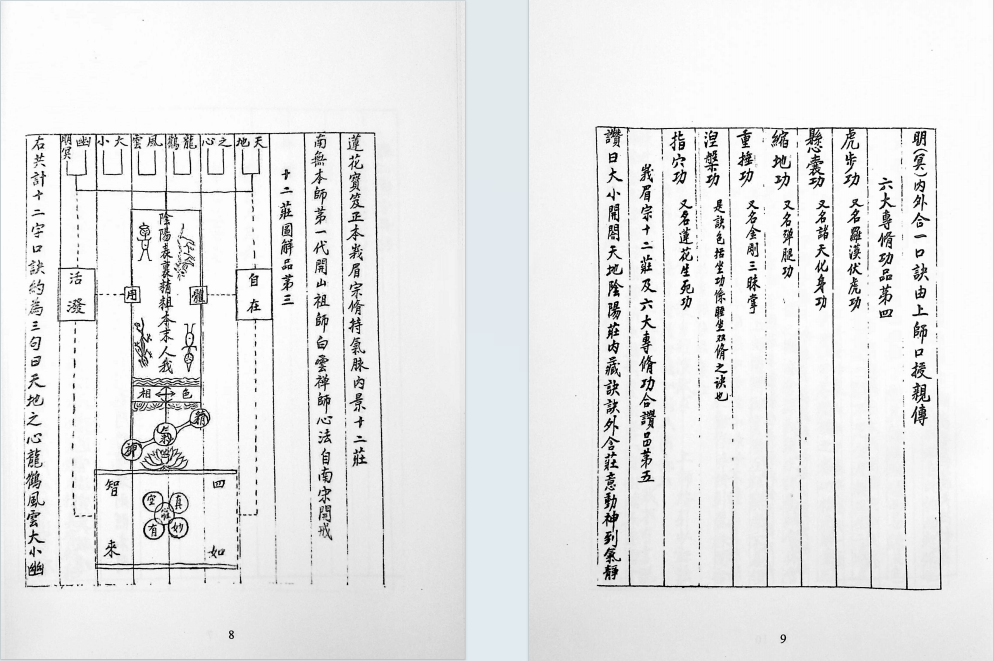 蓮花寶笈正本峩眉宗脩持氣脉内景十二莊
南無本師第一代開山祖師白雲禪師心法自南宋開戒
十二莊圖解品第三
天地之心龍鶴風雲大小幽明冥
自在
體
陰陽表裏精粗本末人我
用
活潑
色相
精
氣
神
四
如
智
來
真
空
莊
妙
有
右共計十二字口訣約為三句曰天地之心龍鶴風雲大小幽
8
明(冥)内外合一口訣由上師口授親傳
六大專脩功品第四
虎步功 又名羅漢伏虎功
懸囊功 又名諸天化身功
縮地功 又名彈腿功
重捶功 又名金剛三昧掌
涅槃功 是訣包括坐功係睡坐双脩之诀也
指穴功 又名蓮花生死功
峩眉宗十二莊及六大專脩功合讚品第五
讚曰大小開闔天地陰陽莊内藏訣訣外含莊意動神到氣靜
9